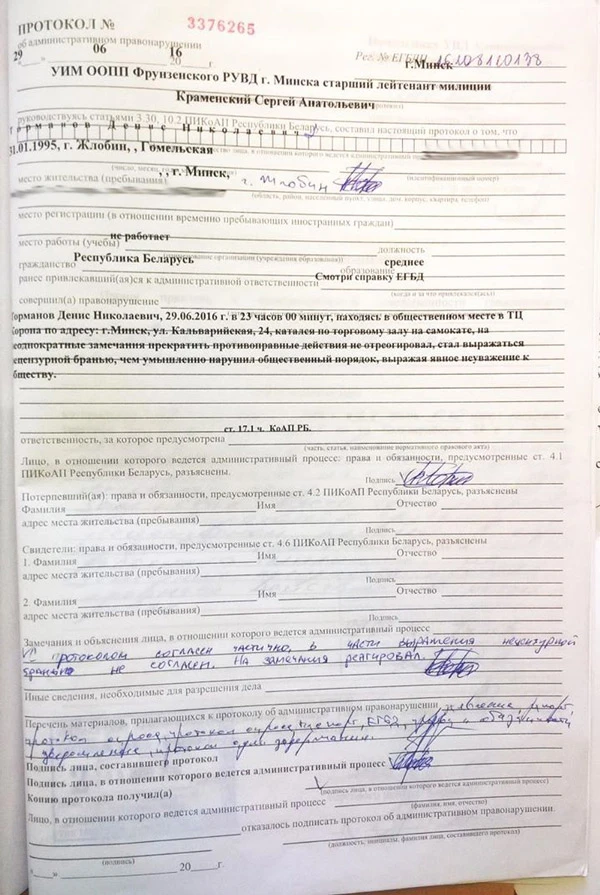 ПРОТОКОЛ № 3376265
об административном правонарушении
29 06 2016 г.Минск
Рег. № ЕГБДП
УИМ ООПП Фрунзенского РУВД г. Минска старший лейтенант милиции
Краменский Сергей Анатольевич
руководствуясь статьями 3.30, 10.2 ПИКоАП Республики Беларусь, составил настоящий протокол о том, что
Горманов Денис Николаевич
31.01.1995, г. Жлобин, , Гомельская
(идентификационный номер)
место жительства (пребывания) , , г. Минск, г. Жлобин
(область, район, населенный пункт, улица, дом, корпус, квартира, телефон)
место регистрации (в отношении временно пребывающих иностранных граждан)
не работает
место работы (учебы) должность
(наименование организации (учреждения образования))
гражданство Республика Беларусь образование среднее
ранее привлекавший(ая)ся к административной ответственности Смотри справку ЕГБД
(когда и за что привлекался(ась))
совершил(а) правонарушение
Горманов Денис Николаевич, 29.06.2016 г. в 23 часов 00 минут, находясь в общественном месте в ТЦ
Корона по адресу: г.Минск, ул. Кальварийская, 24, катался по торговому залу на самокате, на
неоднократные замечания прекратить противоправные действия не отреогировал, стал выражаться
нецензурной бранью, чем умышленно нарушил общественный порядок, выражая явное неуважение к
обществу.
ст. 17.1 ч. КоАП РБ.
ответственность, за которое предусмотрена
(часть, статья, наименование нормативного правового акта)
Лицо, в отношении которого ведется административный процесс: права и обязанности, предусмотренные ст. 4.1
ПИКоАП Республики Беларусь, разъяснены.
Подпись
Потерпевший(ая): права и обязанности, предусмотренные ст. 4.2 ПИКоАП Республики Беларусь, разъяснены
Фамилия Имя Отчество
адрес места жительства (пребывания)
Подпись
Свидетели: права и обязанности, предусмотренные ст. 4.6 ПИКоАП Республики Беларусь, разъяснены
1. Фамилия Имя Отчество
адрес места жительства (пребывания)
Подпись
2. Фамилия Имя Отчество
адрес места жительства (пребывания)
Подпись
Замечания и объяснения лица, в отношении которого ведется административный процесс
С протоколом согласен частично, в части выражения нецензурной
бранью не согласен. На замечания реагировал.
Иные сведения, необходимые для разрешения дела
Перечень материалов, прилагающихся к протоколу об административном правонарушении, рапорт,
протокол опроса, протокол опроса, ЕГБД, права и обязанности
уведомление, протокол адм. задержания.
Подпись лица, составившего протокол
Подпись лица, в отношении которого ведется административный процесс
Копию протокола получил(а)
(подпись лица, в отношении которого ведется административный процесс)
Лицо, в отношении которого ведется административный процесс
(фамилия, имя, отчество)
отказалось подписать протокол об административном правонарушении.
(должность, инициалы, фамилия лица, составившего протокол)
(подпись)
20 г.